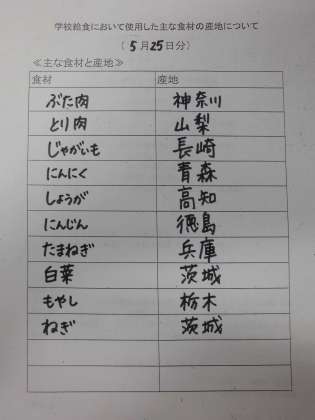 学校給食において使用した主な食材の産地について
（ 5 月 25 日分）
≪主な食材と産地≫
食材 産地
ぶた肉 神奈川
とり肉 山梨
じゃがいも 長崎
にんにく 青森
しょうが 高知
にんじん 徳島
たまねぎ 兵庫
白菜 茨城
もやし 栃木
ねぎ 茨城